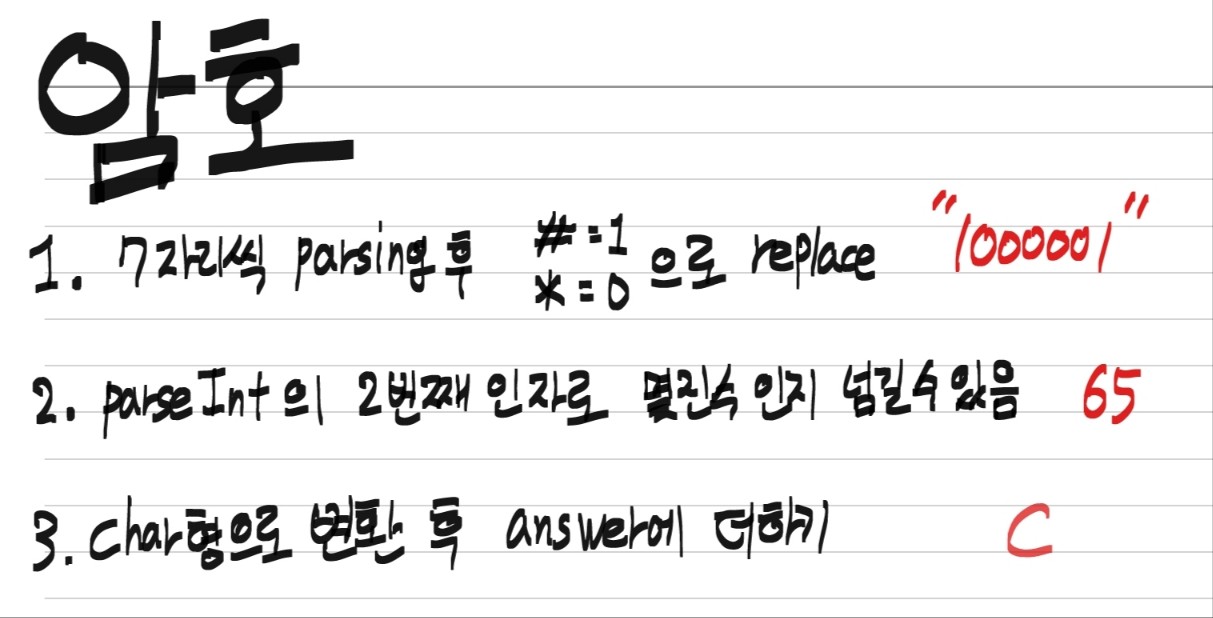 암호
1. 7자리씩 parsing 후 #=1 *=0 으로 replace "1000001"
2. parseInt의 2번째 인자로 몇진수인지 넘길수있음 65
3. char형으로 변환 후 answer에 더하기 C